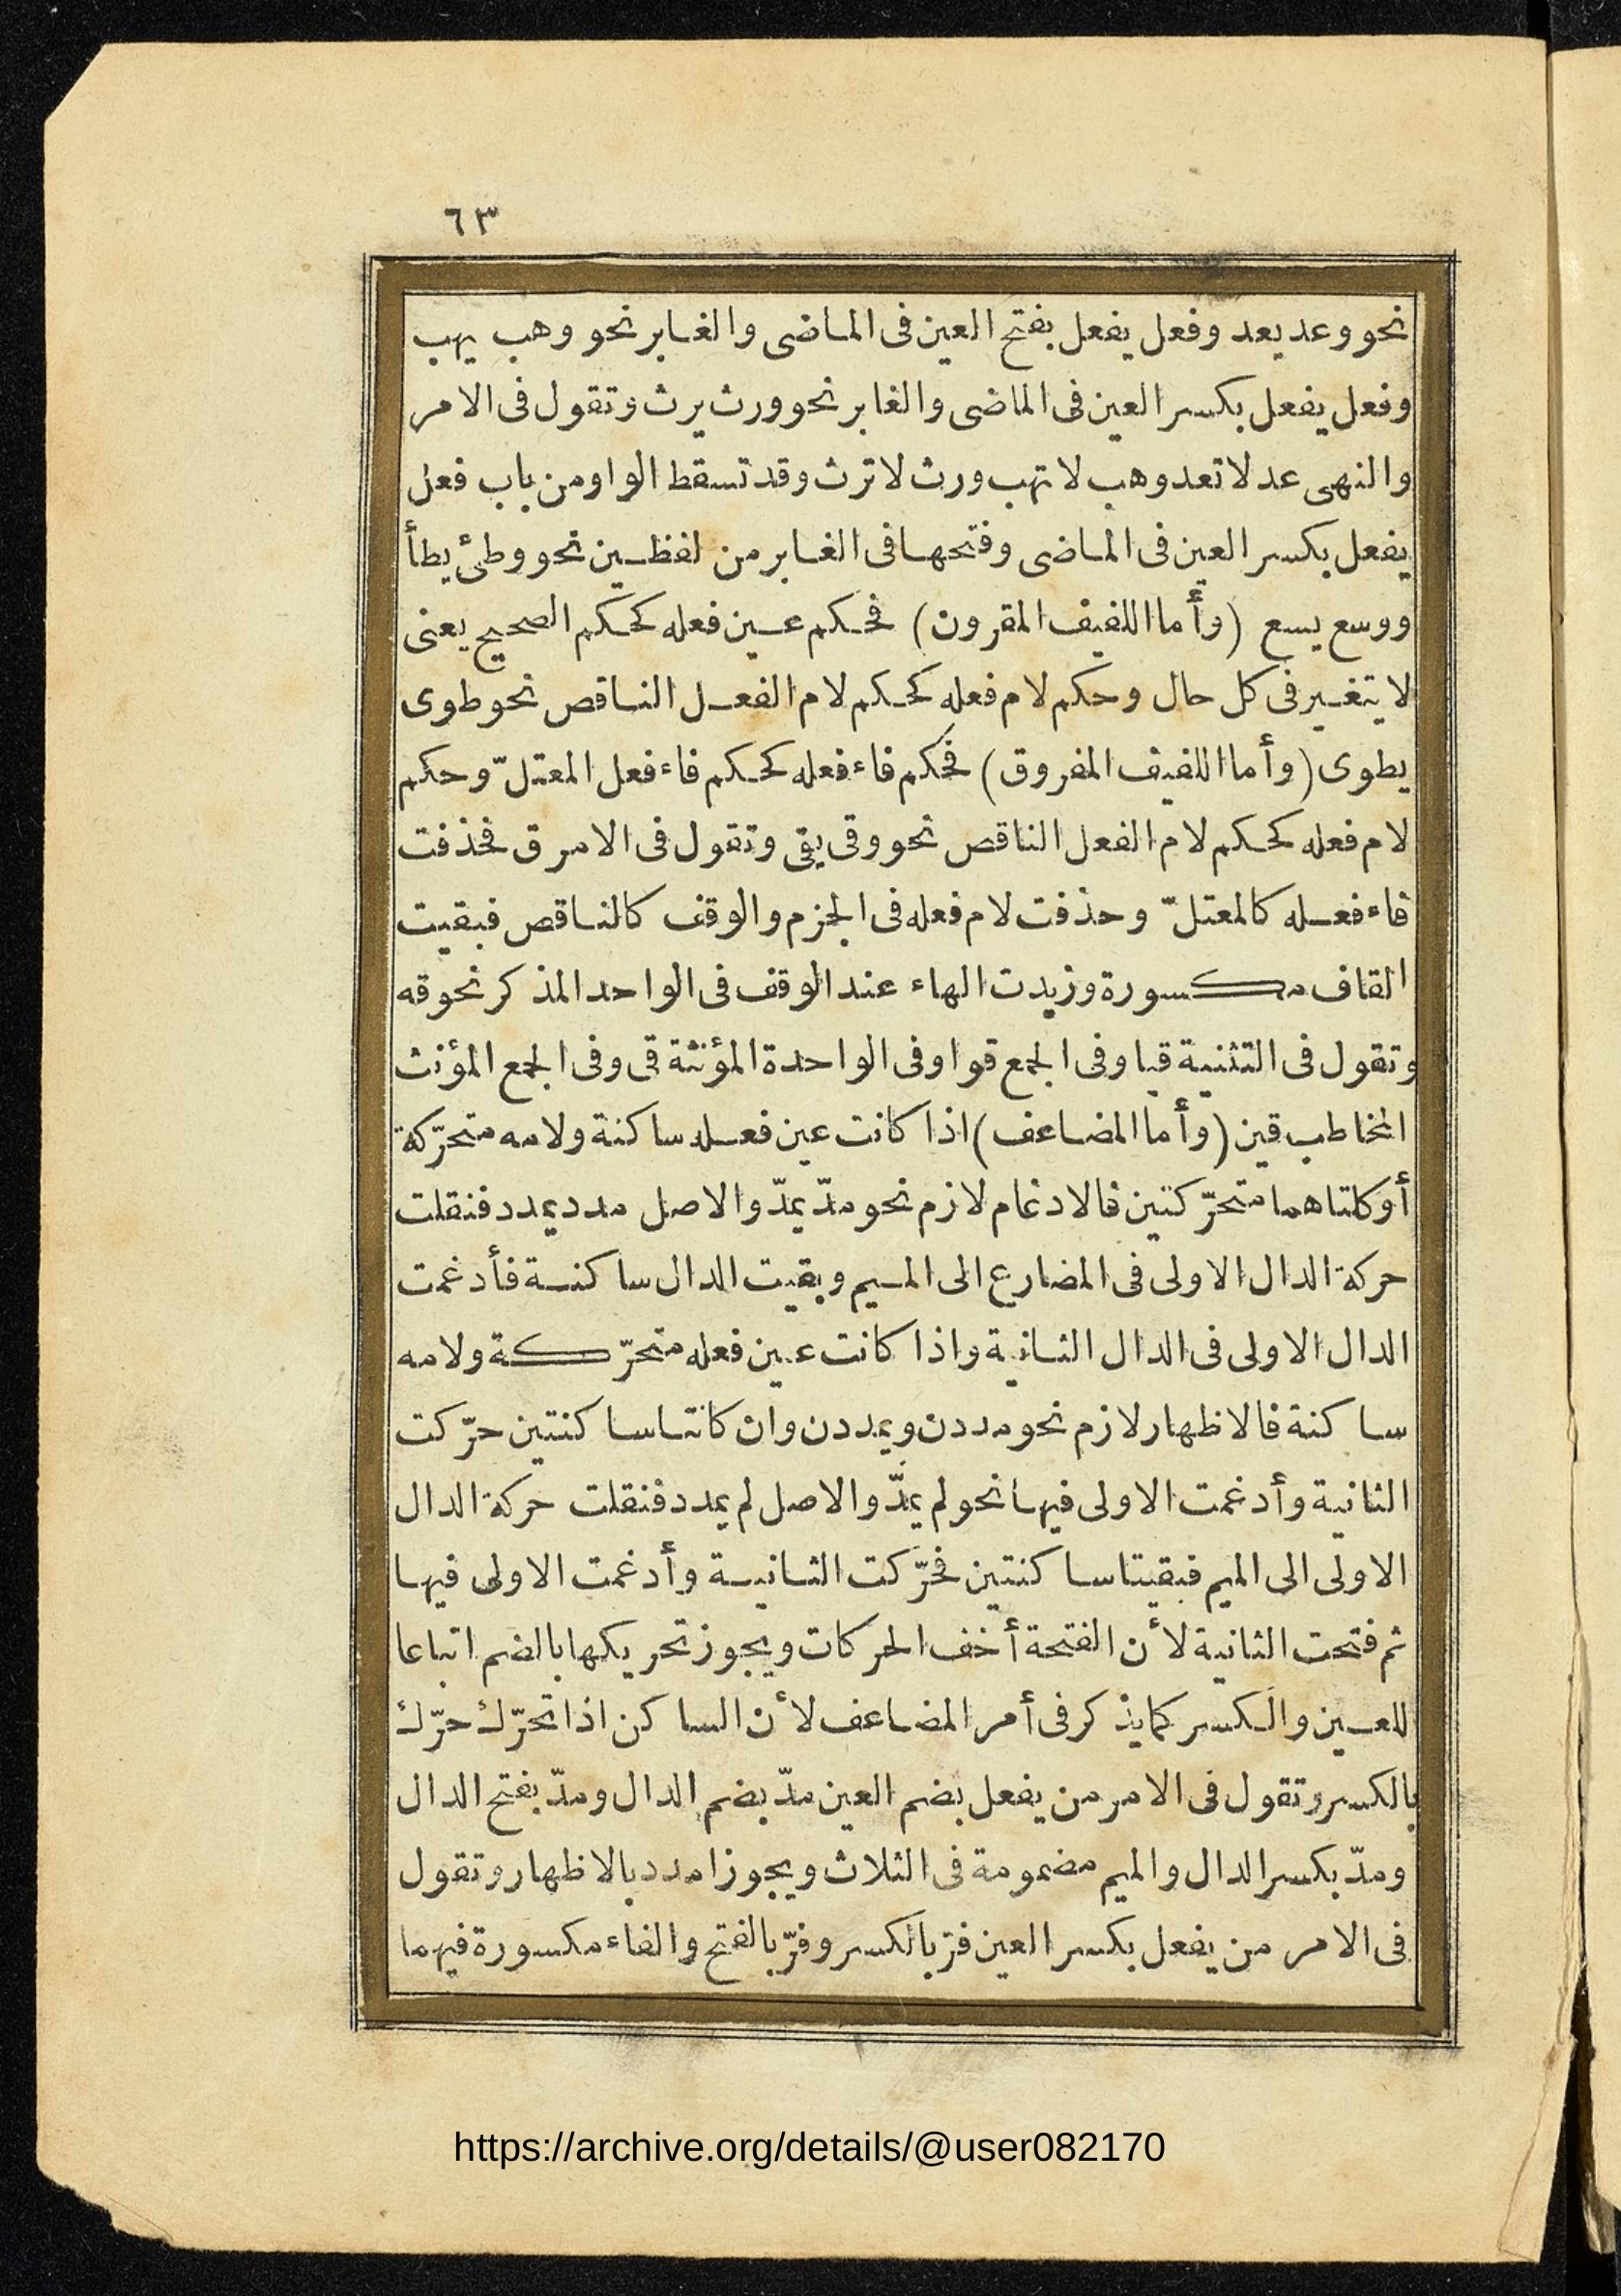 ٦٣
نحو وعد يعد وفعل يفعل بفتح العين فى الماضى والغابر نحو وهب يهب
وفعل يفعل بكسر العين فى الماضى والغابر نحو ورث يرث وتقول فى الامر
والنهى عد لا تعد وهب لا تهب ورث لا ترث وقد تسقط الواو من باب فعل
يفعل بكسر العين فى الماضى وفتحها فى الغابر من لفظين نحو وطئ يطأ
ووسع يسع (وأما اللفيف المقرون) فحكم عين فعله كحكم الصحيح يعنى
لا يتغير فى كل حال وحكم لام فعله كحكم لام الفعل الناقص نحو طوى
يطوى (وأما اللفيف المفروق) فحكم فاء فعله كحكم فاء فعل المعتلّ وحكم
لام فعله كحكم لام الفعل الناقص نحو وقى يقى وتقول فى الامر ق فحذفت
فاء فعله كالمعتلّ وحذفت لام فعله فى الجزم والوقف كالناقص فبقيت
القاف مكسورة وزيدت الهاء عند الوقف فى الواحد المذكر نحو قه
وتقول فى التثنية قيا وفى الجمع قوا وفى الواحدة المؤنثة قى وفى الجمع المؤنث
المخاطب قين (وأما المضاعف) اذا كانت عين فعله ساكنة ولامه متحرّكة
أو كلتاهما متحرّكتين فالادغام لازم نحو مدّ يمدّ والاصل مدد يمدد فنقلت
حركة الدال الاولى فى المضارع الى الميم وبقيت الدال ساكنة فأدغمت
الدال الاولى فى الدال الثانية واذا كانت عين فعله متحرّكة ولامه
ساكنة فالاظهار لازم نحو مددن ويمددن وان كانتا ساكنتين حرّكت
الثانية وأدغمت الاولى فيها نحو لم يمدّ والاصل لم يمدد فنقلت حركة الدال
الاولى الى الميم فبقيتا ساكنتين فحرّكت الثانية وأدغمت الاولى فيها
ثم فتحت الثانية لأن الفتحة أخف الحركات ويجوز تحريكها بالضم اتباعا
للعين والكسر كما يذكر فى أمر المضاعف لأن الساكن اذا تحرّك حرّك
بالكسر وتقول فى الامر من يفعل بضم العين مدّ بضم الدال ومدّ بفتح الدال
ومدّ بكسر الدال والميم مضمومة فى الثلاث ويجوز امدد بالاظهار وتقول
فى الامر من يفعل بكسر العين فرّ بالكسر وفرّ بالفتح والفاء مكسورة فيهما
https://archive.org/details/@user082170